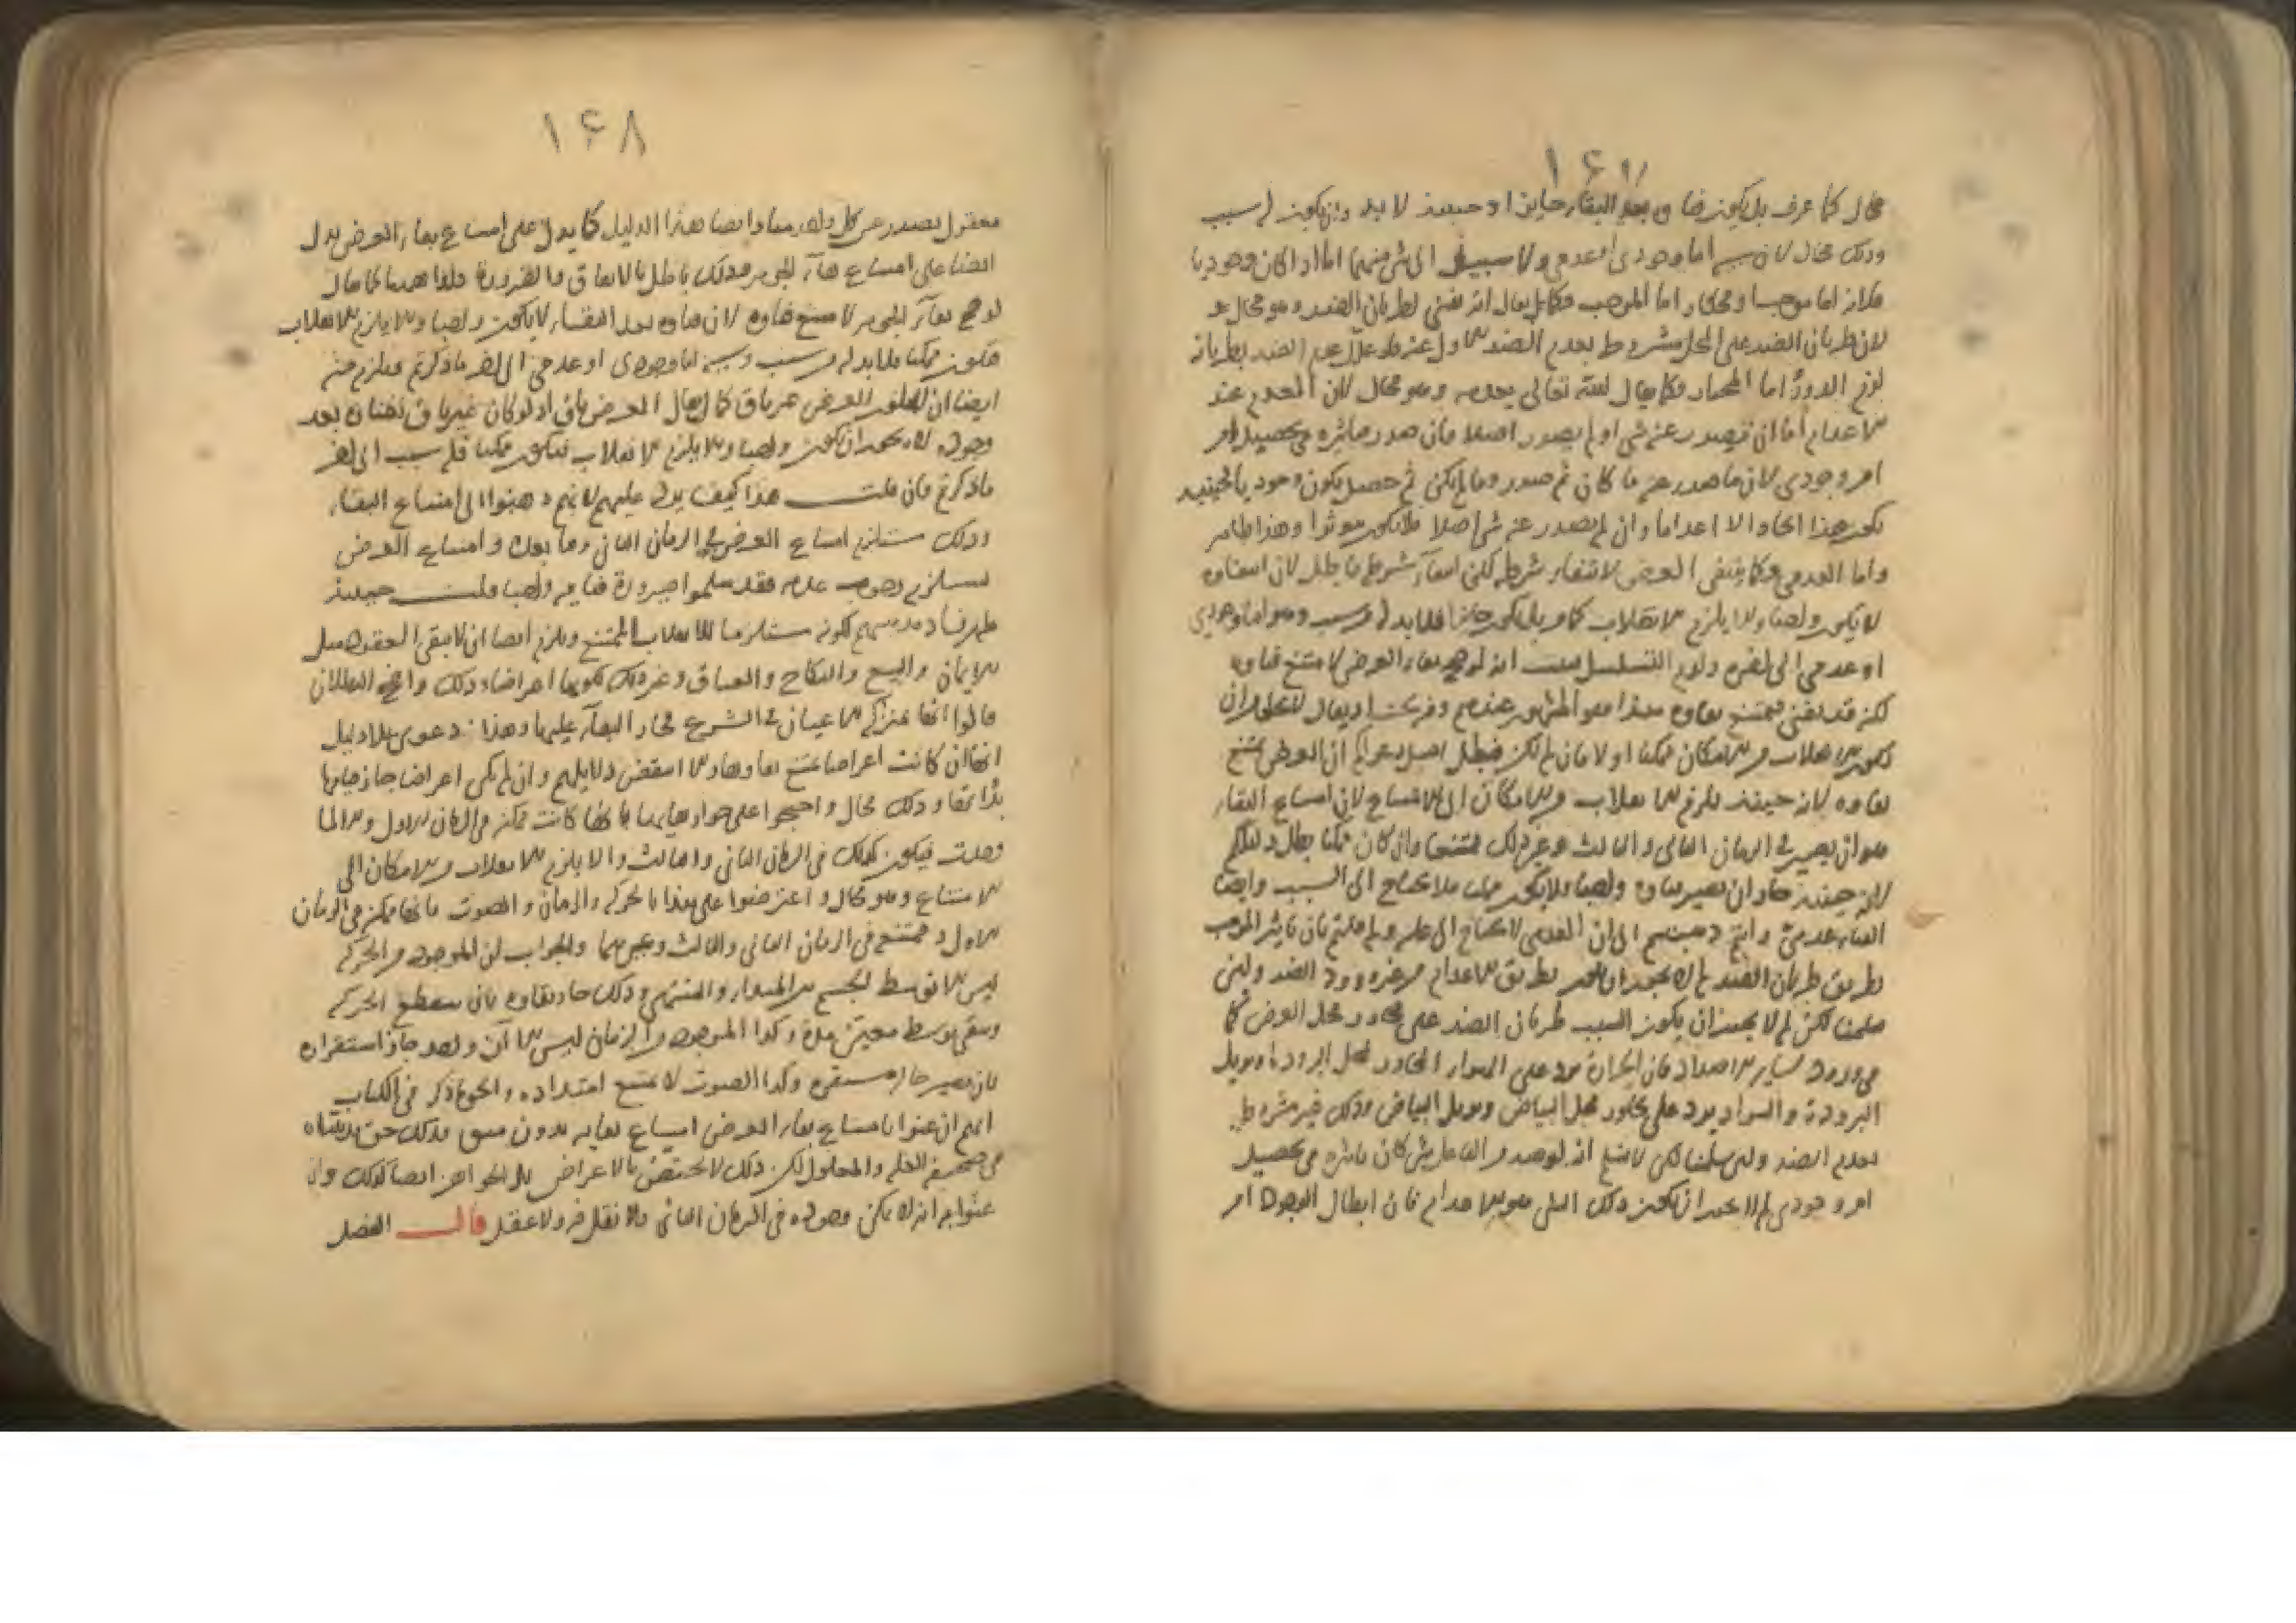 ١٤٧
محال كما عرف بل يكون فناؤه بعد البقاء جايزا وحينئذ لا بد وان يكون له سبب
وذلك محال لان سببه اما وجودى او عدمى ولا سبيل الى شى منهما اما اذا كان وجوديا
فلانه اما موجب او مختار اما الموجب فكما يقال انه يفنى لطريان الضد وهو محال
لان طريان الضد على المحل مشروط بعدم الضد الاول عنه فلو علل عدم الضد بطريانه
لزم الدور اما المختار فكما يقال الله تعالى يعدمه وهو محال لان المعدم عند
الاعدام اما ان يصدر عنه شى او لم يصدر اصلا فان صدر فتاثيره فى تحصيل امر
امر وجودى لان ما صدر عنه ما كان ثم صدر وما لم يكن ثم حصل يكون وجوديا فحينئذ
يكون هذا ايجادا لا اعداما وان لم يصدر عنه شى اصلا فلا يكون موثرا وهذا ظاهر
واما العدمى فكما ينتفى العرض لانتفاء شرطه لكن انتفاء شرطه باطل لان انتفاوه
لا يكون واجبا والا يلزم الانقلاب كما مر بل يكون جايزا فلا بد له من سبب وهو اما وجودى
او عدمى الى اخره ولزم التسلسل فثبت انه لو صح بقاء العرض لامتنع فناوه
لكنه قد يفنى فيمتنع بقاوه هذا هو المشهور عندهم وفيه بحث اذ يقال لا يخلو من ان
يكون الانقلاب من الامكان ممكنا او لا فان لم يكن فبطل اصل دعواكم ان العرض يمتنع
بقاوه لانه حينئذ يلزم الانقلاب من الامكان الى الامتناع لان امتناع البقاء
هو ان يصير فى الزمان الثانى والثالث وغير ذلك ممتنعا وان كان ممكنا بطل دليلكم
لانه حينئذ جاز ان يصير فناوه واجبا ولا يكون ممكنا فلا يحتاج الى السبب وايضا
الفناء عدمى وانتم ذهبتم الى ان العدمى لا يحتاج الى علة ولم قلتم بان تاثير الموجب
بطريق طريان الضد لم لا يجوز ان يعدم بطريق الاعدام من غير ورود الضد ولئن
سلمنا لكن لم لا يجوز ان يكون السبب طريان الضد على مجاور محل العرض كما
فى ورود ساير الاضداد فان الحرارة ترد على الهواء المجاور لمحل البرودة فيزيل
البرودة والسواد يرد على مجاور محل البياض ويزيل البياض وذلك غير مشروط
بعدم الضد ولئن سلمنا لكن لا نسلم انه لو صدر من الفاعل شى كان تاثيره فى تحصيل
امر وجودى لم لا يجوز ان يكون ذلك الشى هو الاعدام فان ابطال الوجود امر
١٤٨
معقول يصدر عن كل واحد منا وايضا هذا الدليل كما يدل على امتناع بقاء العرض يدل
ايضا على امتناع بقاء الجوهر وذلك باطل بالاتفاق والضرورة فلو صح هنا كما يقال
لو صح بقاء الجوهر لامتنع فناوه لان فناوه بعد البقاء لا يكون واجبا والا يلزم الانقلاب
فيكون ممكنا فلا بد له من سبب وسببه اما وجودى او عدمى الى اخر ما ذكرتم فيلزم منه
ايضا ان يكون العرض غير باق كما يقال العرض باق اذ لو كان غير باق لفنى بعد
وجوده لا يجوز ان يكون واجبا والا يلزم الانقلاب فيكون ممكنا فله سبب الى اخر
ما ذكرتم فان قلت هذا كيف يرد عليهم لانهم ذهبوا الى امتناع البقاء
وذلك يستلزم امتناع العرض فى الزمان الثانى وما بعده وامتناع العرض
يستلزم وجوب عدمه فقد سلموا صيرورة فنايه واجبا قلت حينئذ
ظهر فساد مذهبهم لكونه مستلزما للانقلاب الممتنع ويلزم ايضا ان لا يبقى العقود مثل
الايمان والبيع والنكاح والعتاق وغير ذلك لكونها اعراضا وذلك واضح البطلان
قالوا انها بمنزلة الاعيان فى الشرع فجاز البقاء عليها وهذا دعوى بلا دليل
انها ان كانت اعراضا يمتنع بقاوها والا انتقض دلايلهم وان لم يكن اعراضا جاز قيامها
بذاتها وذلك محال واحتجوا على جواز بقايها بانها كانت ممكنة فى الزمان الاول والا لما
وجدت فيكون كذلك فى الزمان الثانى والثالث والا يلزم الانقلاب من الامكان الى
الامتناع وهو محال واعترضوا على هذا بالحركة والزمان والصوت فانها ممكنة فى الزمان
الاول وممتنعة فى الزمان الثانى والثالث وغيرهما والجواب ان الموجود من الحركة
ليس الا توسط الجسم بين المبدا والمنتهى وذلك جاز بقاوه بان ينقطع الحركة
ويبقى توسط معين مدة وكذا الموجود من الزمان ليس الا آن واحد جاز استقراره
بان يصير حالة مستقرة وكذا الصوت لا يمتنع امتداده والحق ما ذكر فى الكتاب
انهم ان عنوا بامتناع بقاء العرض امتناع بقايه بدون مبق فذلك حق بيناه
فى صحيفة العلة والمعلول لكن ذلك لا يختص بالاعراض بل الجواهر ايضا كذلك وان
عنوا به انه لا يمكن وجوده فى الزمان الثانى فلا نقل فيه ولا عقل قال الفصل